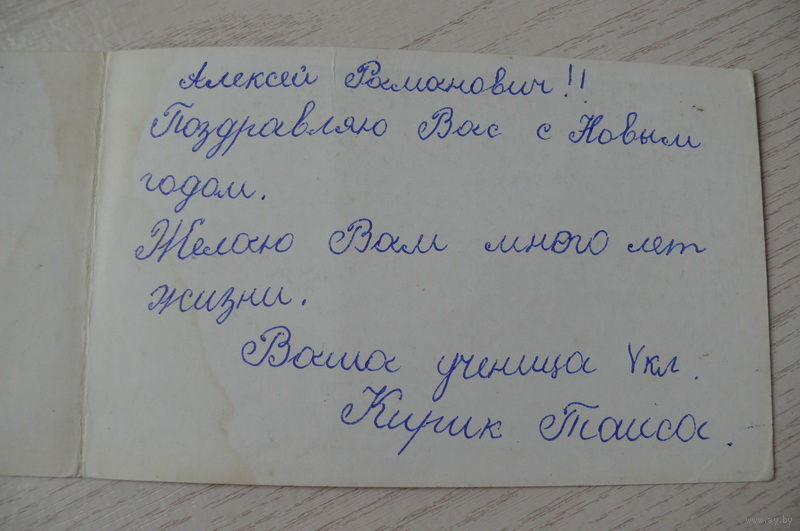 Алексей Раманович!!
Поздравляю Вас с Новым
годом.
Желаю Вам много лет
жизни.
Ваша ученица V кл.
Кирик Таиса.
www.ay.by